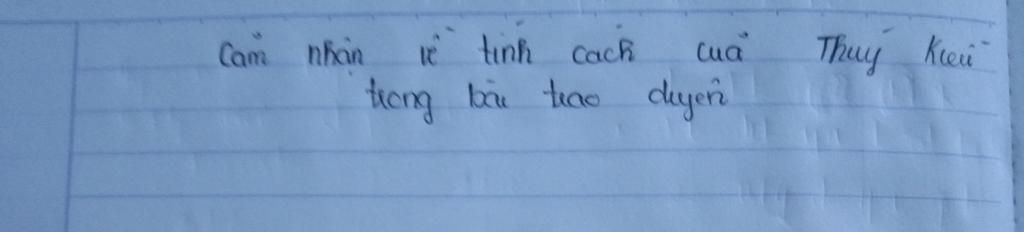 Cảm nhận về tính cách của Thuý Kiều
trong bài trao duyên